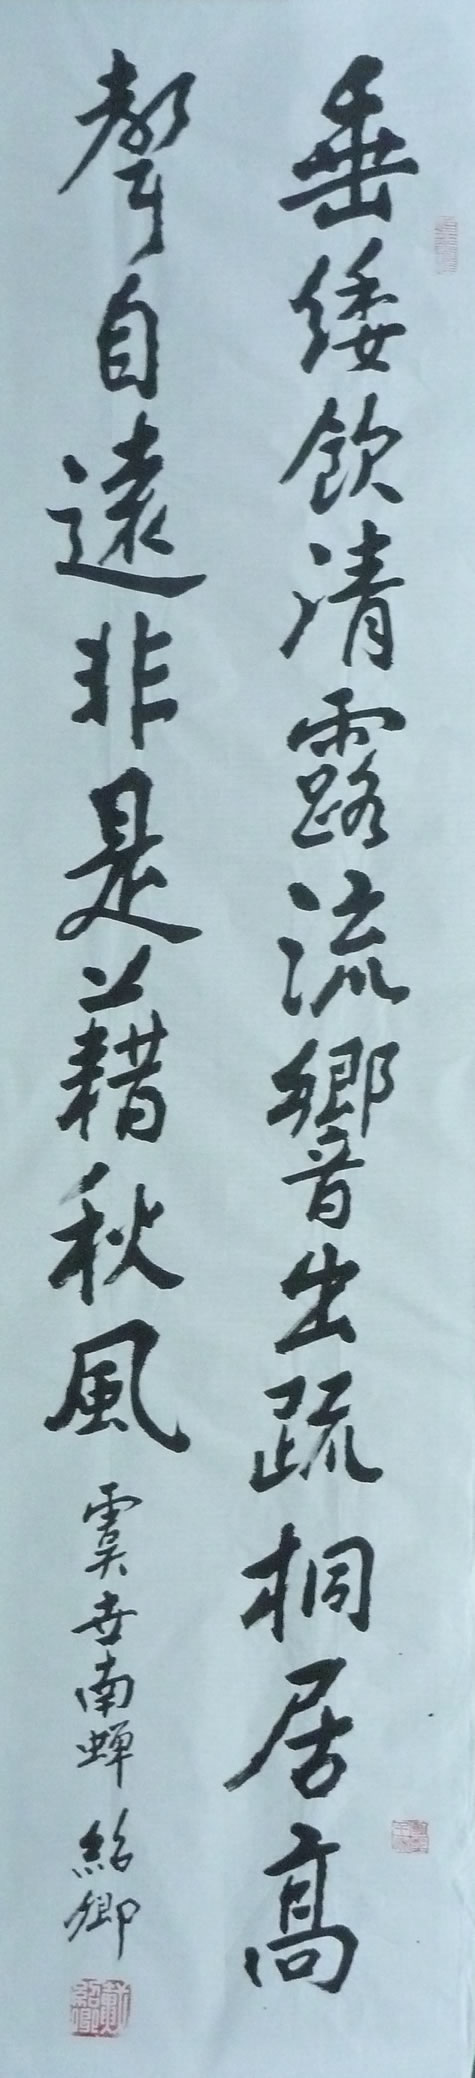 垂緌飲清露流響出疏桐居高
聲自遠非是藉秋風
虞世南蝉 紹卿